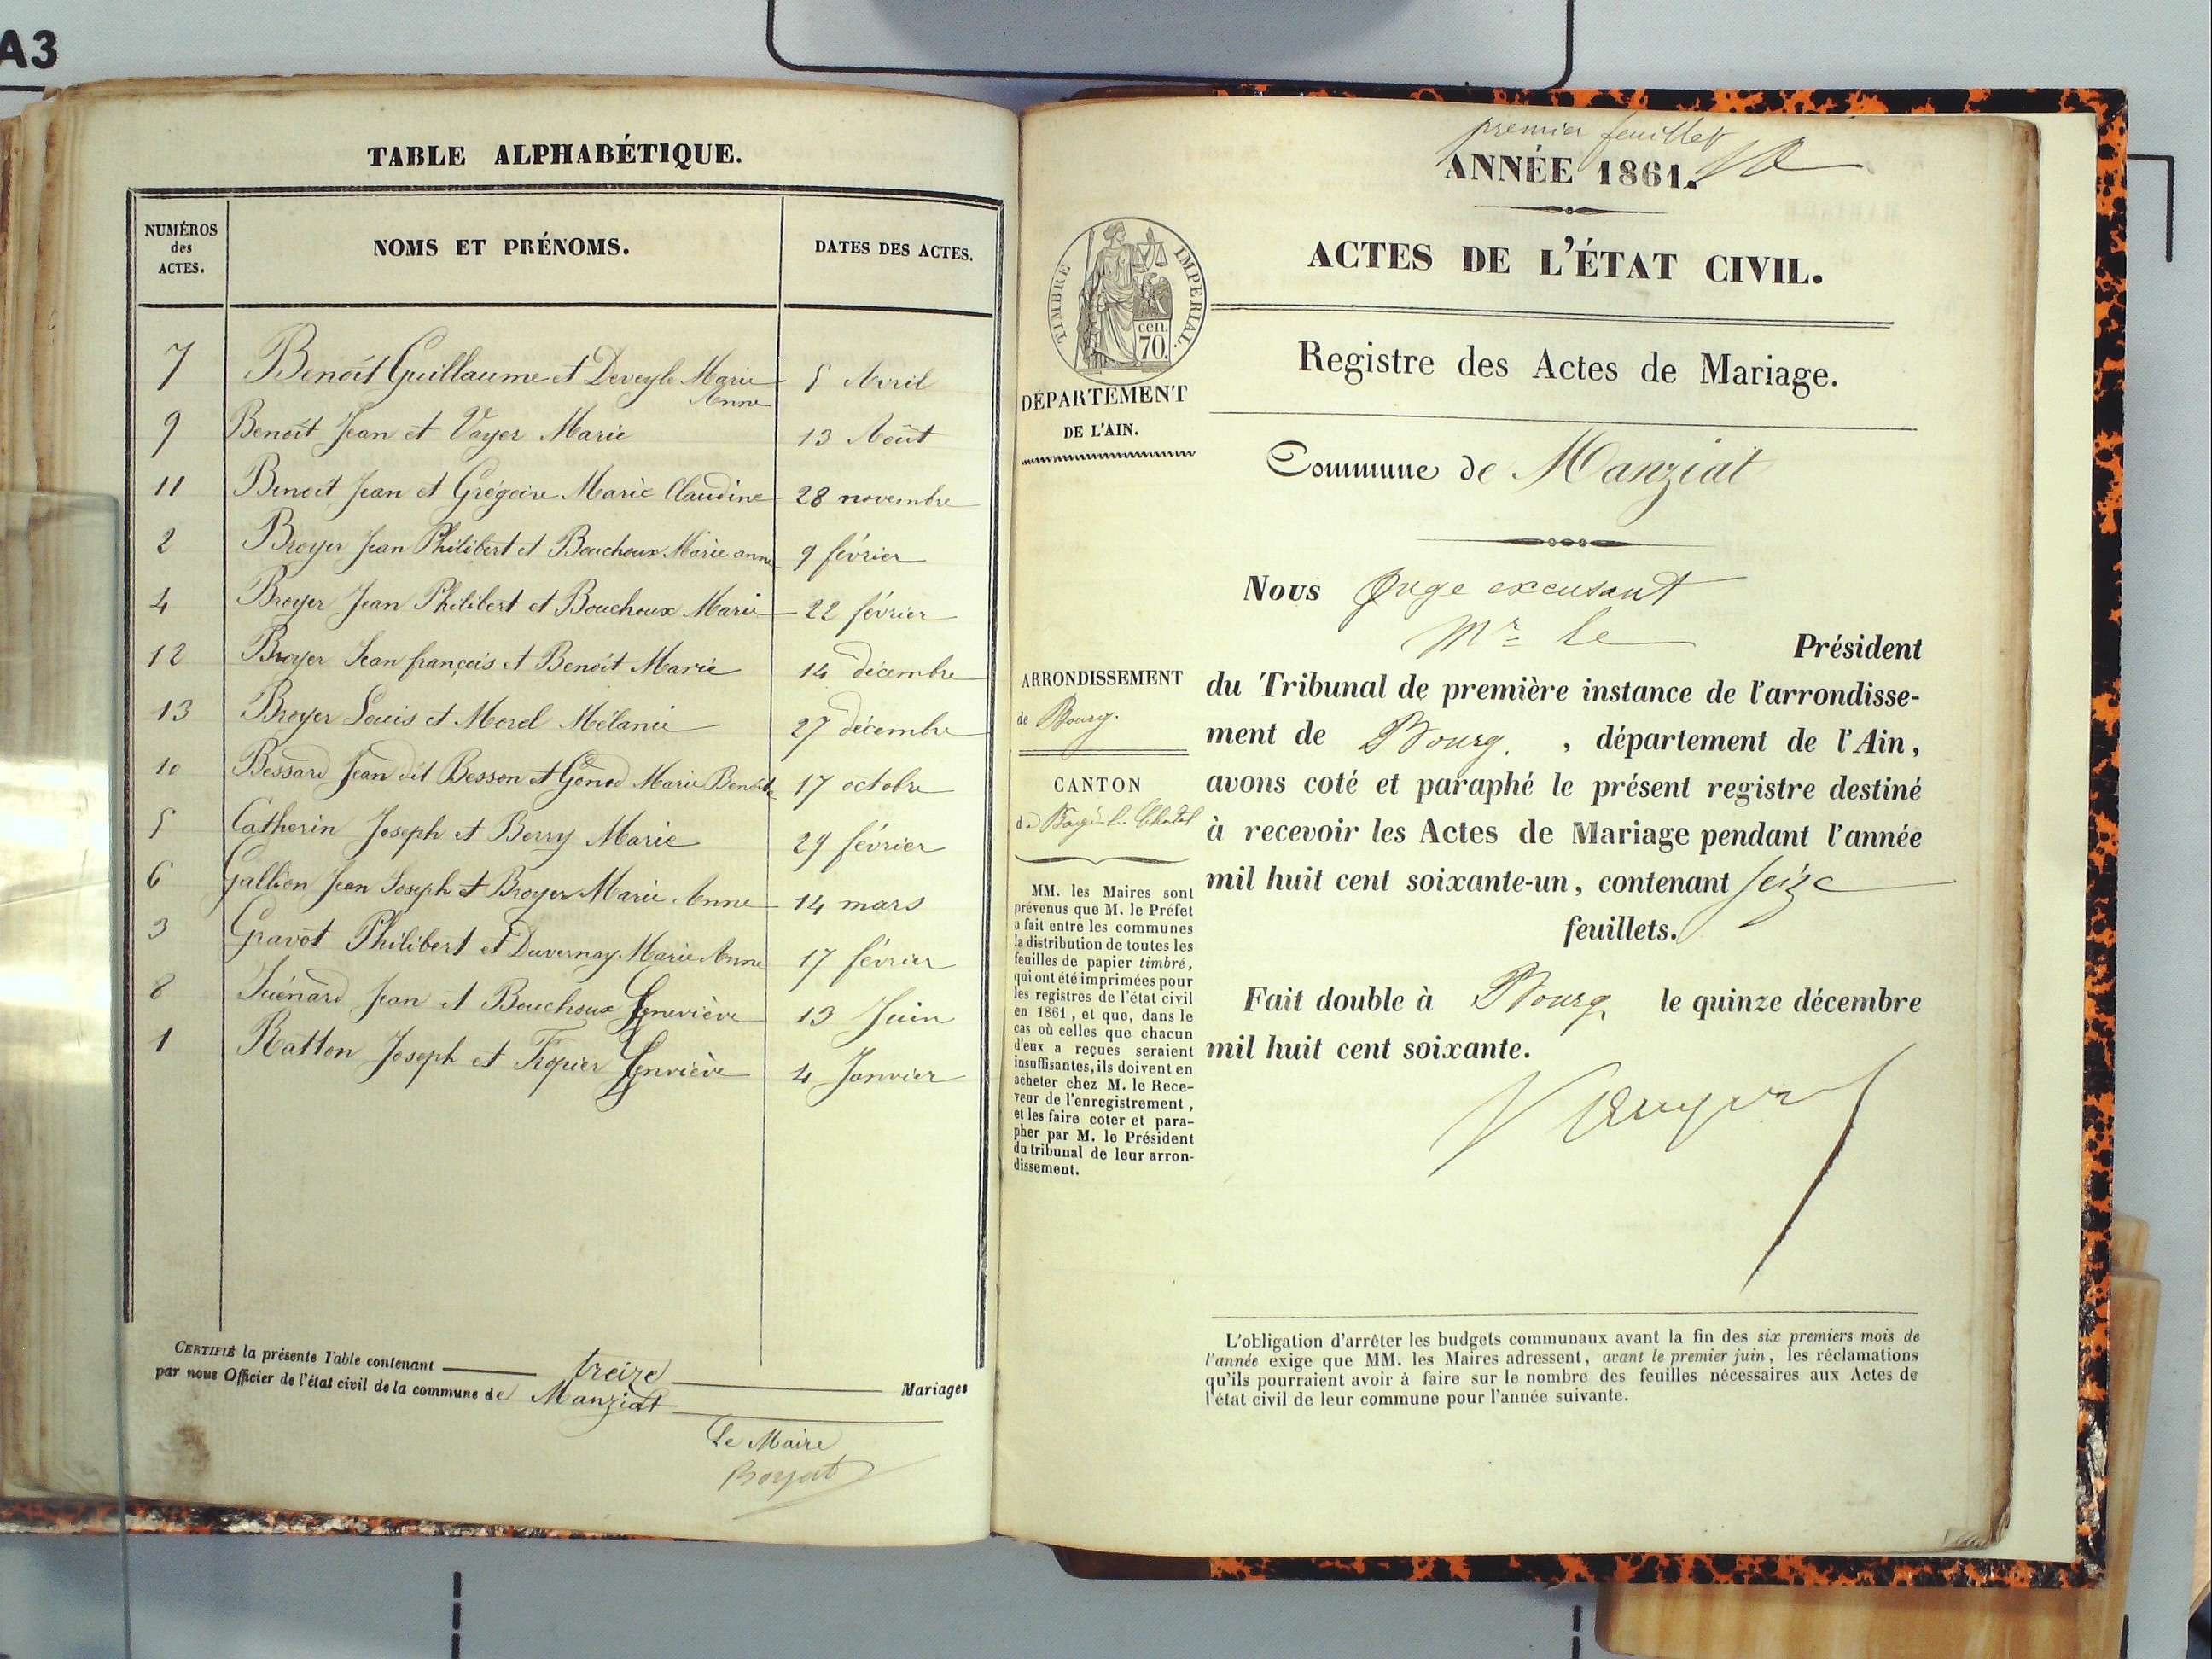 A3
TABLE ALPHABÉTIQUE.
NUMÉROS des ACTES. NOMS ET PRÉNOMS. DATES DES ACTES.
7 Benoît Guillaume et Deveyle Marie Anne 5 Avril
9 Benoît Jean et Voyer Marie 13 Août
11 Benoit Jean et Grégoire Marie Claudine 28 novembre
2 Broyer Jean Philibert et Bouchoux Marie anne 9 février
4 Broyer Jean Philibert et Bouchoux Marie 22 février
12 Broyer Jean françois et Benoît Marie 14 décembre
13 Broyer Louis et Morel Mélanie 27 décembre
10 Bessard Jean dit Besson et Gonod Marie Benoite 17 octobre
5 Catherin Joseph et Berry Marie 29 février
6 Gallion Jean Joseph et Broyer Marie Anne 14 mars
3 Gravot Philibert et Duvernay Marie Anne 17 février
8 Jean et Bouchoux Geneviève 13 Juin
1 Ratton Joseph et Genviève 4 Janvier
CERTIFIÉ la présente Table contenant treize Mariages
par nous Officier de l'état civil de la commune de Manziat
Le Maire
Boyat
premier feuillet
ANNÉE 1861.
ACTES DE L'ÉTAT CIVIL.
TIMBRE IMPERIAL.
cen.
70.
Registre des Actes de Mariage.
DÉPARTEMENT
DE L'AIN.
Commune de Manziat
Nous Juge excusant
Mr le Président
du Tribunal de première instance de l'arrondisse-
ment de Bourg, département de l'Ain,
avons coté et paraphé le présent registre destiné
à recevoir les Actes de Mariage pendant l'année
mil huit cent soixante-un, contenant seize
feuillets.
Fait double à Bourg, le quinze décembre
mil huit cent soixante.
ARRONDISSEMENT
de Bourg.
CANTON
de Bagé-le-Châtel
MM. les Maires sont
prévenus que M. le Préfet
a fait entre les communes
la distribution de toutes les
feuilles de papier timbré,
qui ont été imprimées pour
les registres de l'état civil
en 1861, et que, dans le
cas où celles que chacun
d'eux a reçues seraient
insuffisantes, ils doivent en
acheter chez M. le Rece-
veur de l'enregistrement,
et les faire coter et para-
pher par M. le Président
du tribunal de leur arron-
dissement.
L'obligation d'arrêter les budgets communaux avant la fin des six premiers mois de
l'année exige que MM. les Maires adressent, avant le premier juin, les réclamations
qu'ils pourraient avoir à faire sur le nombre des feuilles nécessaires aux Actes de
l'état civil de leur commune pour l'année suivante.